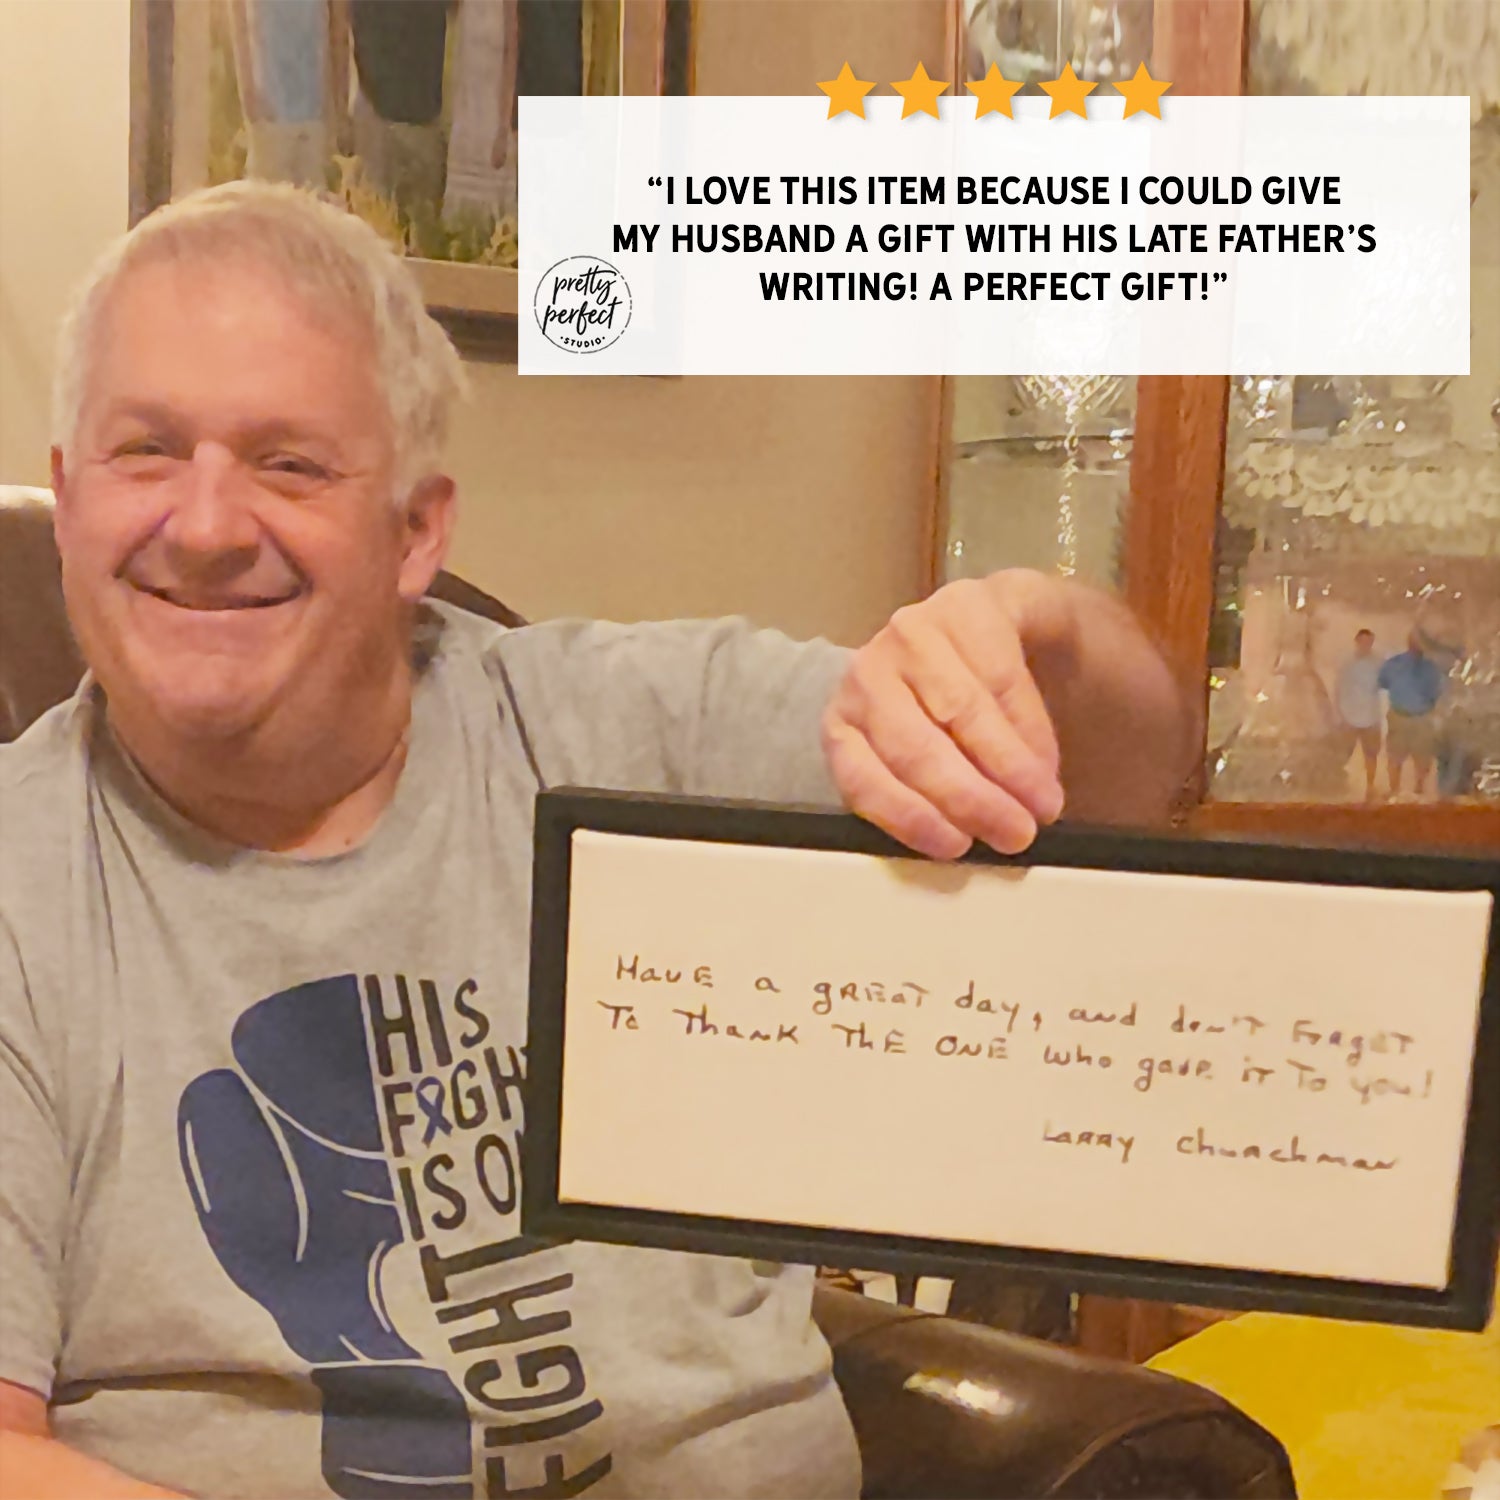 “I LOVE THIS ITEM BECAUSE I COULD GIVE
MY HUSBAND A GIFT WITH HIS LATE FATHER’S
WRITING! A PERFECT GIFT!”
pretty
perfect
•STUDIO•
HavE a gREaT day, and don'T FoRgeT
To Thank ThE ONE who gave iT To you!
LaRRy ChuRchman
HIS
FIGH
IS O
FIGHT
FIGHT